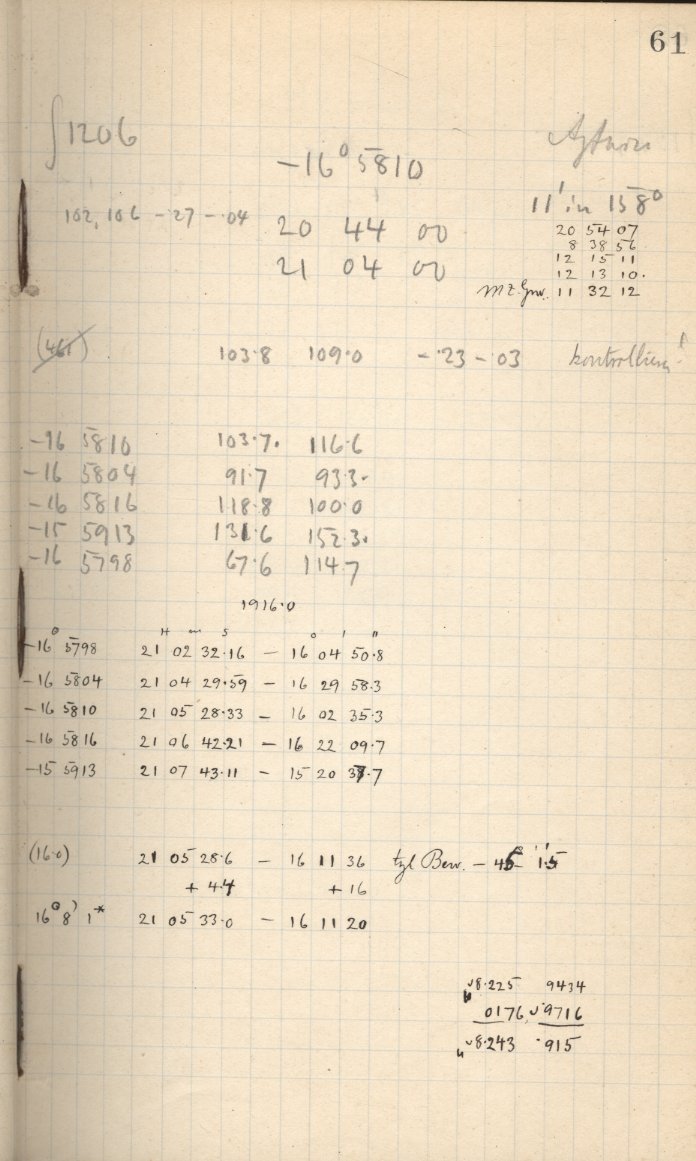 61
∫1206
-16° 5810
11' in 158°
102, 106 - ·27 - ·04 20 44 00
21 04 00
20 54 07
8 38 56
12 15 11
12 13 10.
M Z. Grw. 11 32 12
(461) 103·8 109·0 - ·23 - ·03
-16 5810 103·7. 116·6
-16 5804 91·7 93·3·
-16 5816 118·8 100·0
-15 5913 131·6 152·3.
-16 5798 67·6 114·7
1916·0
H m s ° ' "
-16° 5798 21 02 32·16 - 16 04 50·8
-16 5804 21 04 29·59 - 16 29 58·3
-16 5810 21 05 28·33 - 16 02 35·3
-16 5816 21 06 42·21 - 16 22 09·7
-15 5913 21 07 43·11 - 15 20 37·7
(16·0) 21 05 28·6 - 16 11 36 tgl Bew. - 45
+ 4·4 + 16
16ᴳ 8' 1* 21 05 33·0 - 16 11 20
8·225 9434
0176 9716
8·243 ·915